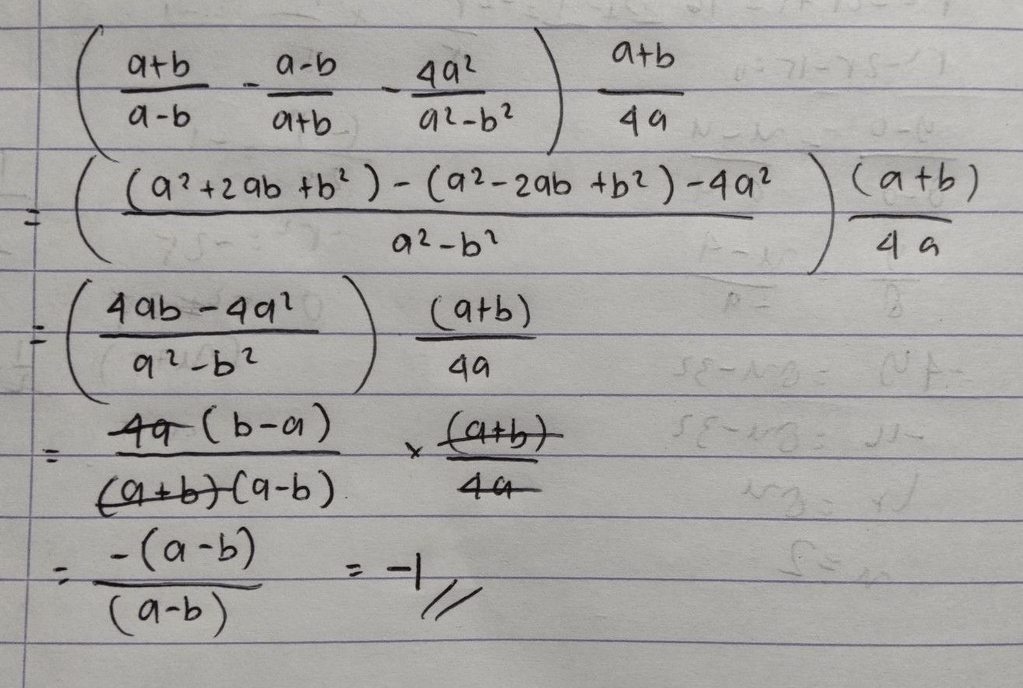 ( (a+b)/(a-b) - (a-b)/(a+b) - 4a²/(a²-b²) ) (a+b)/4a
= ( ((a²+2ab+b²)-(a²-2ab+b²)-4a²)/(a²-b²) ) (a+b)/4a
= ( (4ab-4a²)/(a²-b²) ) (a+b)/4a
= 4a(b-a)/((a+b)(a-b)) × (a+b)/4a
= -(a-b)/(a-b) = -1//